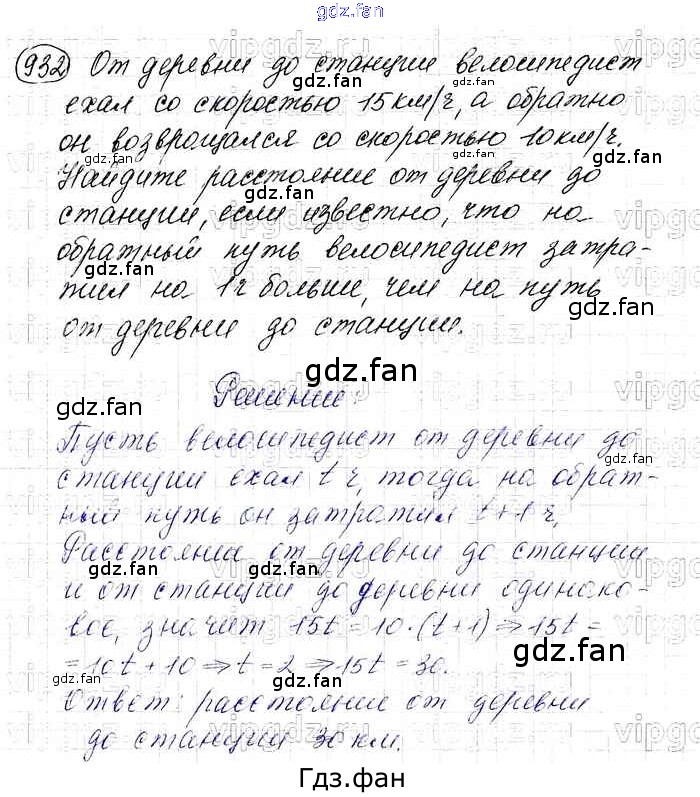 gdz.fan
932 От деревни до станции велосипедист
ехал со скоростью 15 км/ч, а обратно
он возвращался со скоростью 10 км/ч.
Найдите расстояние от деревни до
станции, если известно, что на
обратный путь велосипедист затра-
тил на 1 ч больше, чем на путь
от деревни до станции.
gdz.fan
Решение:
Пусть велосипедист от деревни до
станции ехал t ч, тогда на обрат-
ный путь он затратил t+1 ч,
Расстояние от деревни до станции
и от станции до деревни одинако-
вое, значит 15t = 10·(t+1) ⇒ 15t =
= 10t + 10 ⇒ t = 2 ⇒ 15t = 30.
Ответ: расстояние от деревни
до станции 30 км.
Гдз.фан